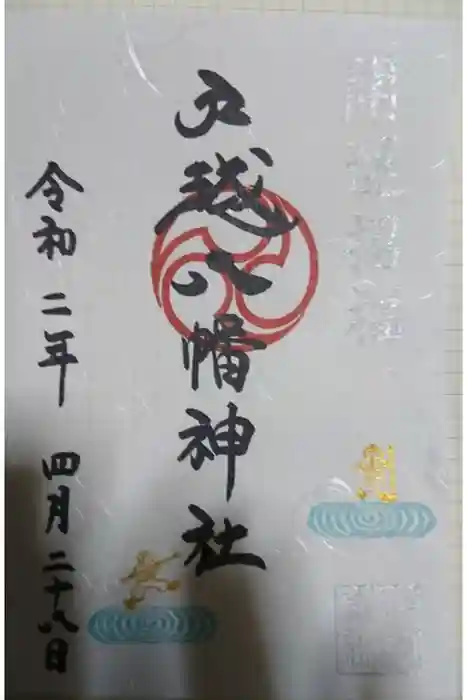 戸越八幡神社
令和二年 四月二十八日